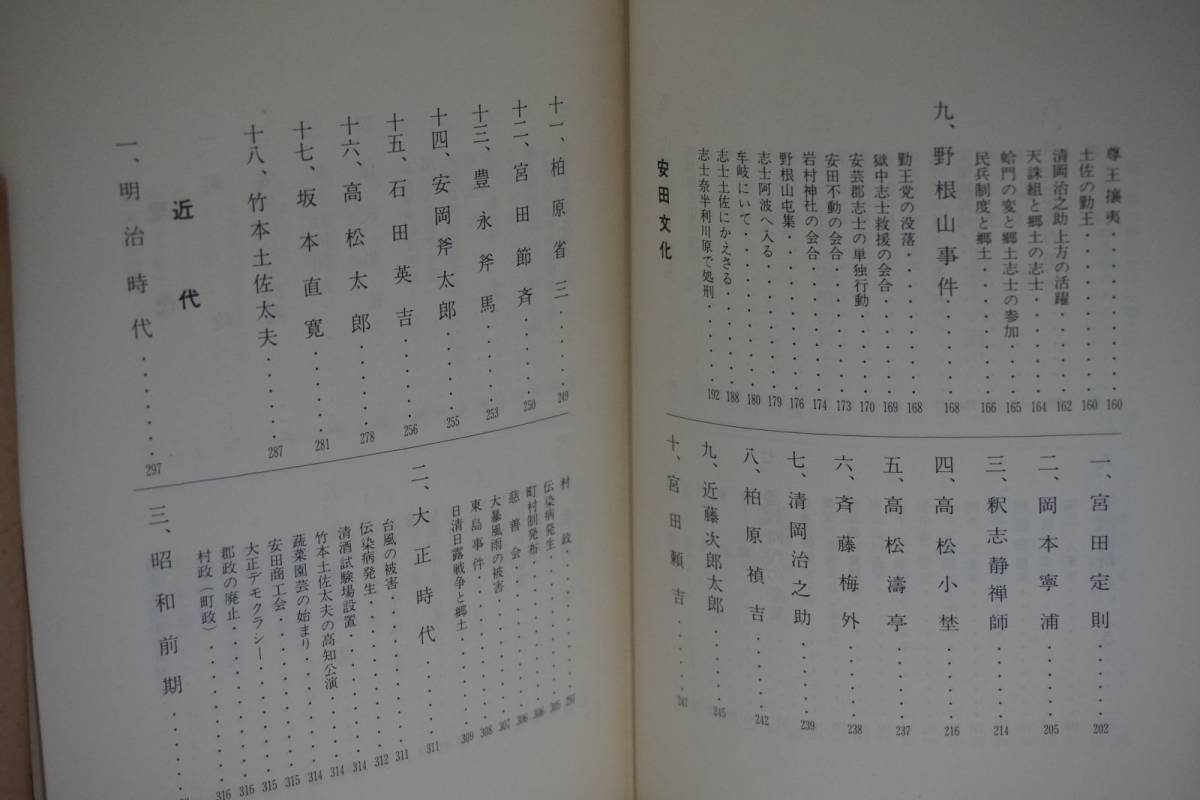 尊王攘夷・・・・・160
土佐の勤王・・・・・160
清岡治之助上方の活躍・・・162
天誅組と郷土の志士・・・・164
蛤門の変と郷土志士の参加・・165
民兵制度と郷土・・・・・166
九、野根山事件・・・・・168
勤王党の没落・・・・・168
獄中志士救援の会合・・・・169
安芸郡志士の単独行動・・・170
安田不動の会合・・・・・173
岩村神社の会合・・・・・174
野根山屯集・・・・・176
志士阿波へ入る・・・・・179
牟岐にいて・・・・・180
志士土佐にかえさる・・・・188
志士奈半利川原で処刑・・・・192
安田文化
一、宮田定則・・・・・202
二、岡本寧浦・・・・・205
三、釈志静禅師・・・・214
四、高松小埜・・・・・216
五、高松濤亭・・・・・237
六、斉藤梅外・・・・・238
七、清岡治之助・・・・239
八、柏原禎吉・・・・・242
九、近藤次郎太郎・・・・245
十、宮田頼吉・・・・・247
十一、柏原省三・・・・・249
十二、宮田節斉・・・・・250
十三、豊永斧馬・・・・・253
十四、安岡斧太郎・・・・・255
十五、石田英吉・・・・・256
十六、高松太郎・・・・・278
十七、坂本直寛・・・・・281
十八、竹本土佐太夫・・・・・287
近代
一、明治時代・・・・・297
村政・・・・・297
伝染病発生・・・・・305
町村制発布・・・・・306
慈善会・・・・・306
大暴風雨の被害・・・・・307
東島事件・・・・・308
日清日露戦争と郷土・・・・309
二、大正時代・・・・・311
台風の被害・・・・・311
伝染病発生・・・・・312
清酒試験場設置・・・・・314
竹本土佐太夫の高知公演・・・314
蔬菜園芸の始まり・・・・・315
安田商工会・・・・・315
大正デモクラシー・・・・・315
郡政の廃止・・・・・316
村政（町政）・・・・・316
三、昭和前期・・・・・